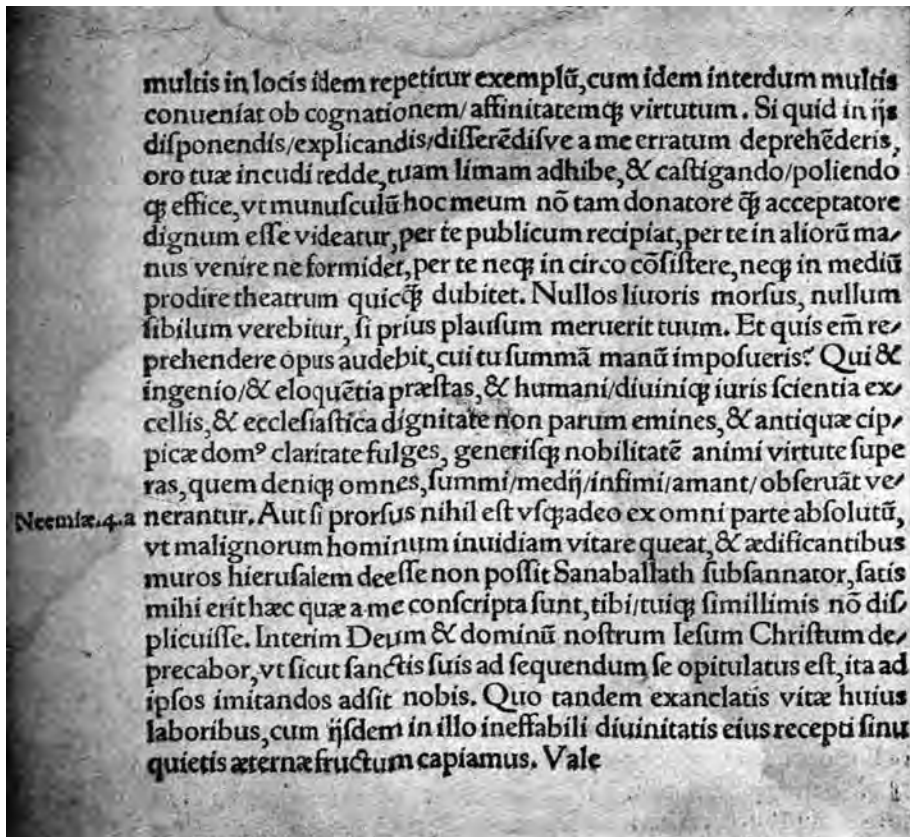 multis in locis idem repetitur exemplū, cum idem interdum multis
conueniat ob cognationem/ affinitatemqꝫ virtutum. Si quid in ijs
diſponendis/explicandis/diſſerēdiſve a me erratum deprehēderis,
oro tuæ incudi redde, tuam limam adhibe, & caſtigando/poliendo
qꝫ effice, vt munuſculū hoc meum nō tam donatore q̄ꝫ acceptatore
dignum eſſe videatur, per te publicum recipiat, per te in aliorū ma⸗
nus venire ne formidet, per te neqꝫ in circo cōſiſtere, neqꝫ in mediū
prodire theatrum quicq̄ꝫ dubitet. Nullos liuoris morſus, nullum
ſibilum verebitur, ſi prius plauſum meruerit tuum. Et quis em̄ re⸗
prehendere opus audebit, cui tu ſummā manū impoſueris? Qui &
ingenio/& eloquētia præſtas, & humani/diuiniqꝫ iuris ſcientia ex⸗
cellis, & eccleſiaſtica dignitate non parum emines, & antiquæ cip⸗
picæ domꝰ claritate fulges, generiſqꝫ nobilitatē animi virtute ſupe
ras, quem deniqꝫ omnes, ſummi/medij/infimi/amant/obſeruāt ve⸗
Neemiæ.4.a nerantur. Aut ſi prorſus nihil eſt vſqꝫadeo ex omni parte abſolutū,
vt malignorum hominum inuidiam vitare queat, & ædificantibus
muros hieruſalem deeſſe non poſſit Sanaballath ſubſannator, ſatis
mihi erit hæc quæ a me conſcripta ſunt, tibi/tuiqꝫ ſimillimis nō diſ⸗
plicuiſſe. Interim Deum & dominū noſtrum Ieſum Chriſtum de⸗
precabor, vt ſicut ſanctis ſuis ad ſequendum ſe opitulatus eſt, ita ad
ipſos imitandos adſit nobis. Quo tandem exanclatis vitæ huius
laboribus, cum ijſdem in illo ineffabili diuinitatis eius recepti ſinu
quietis æternæ fructum capiamus. Vale